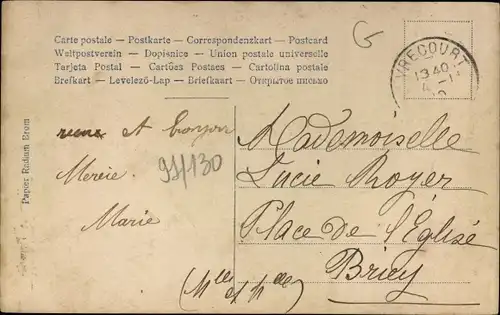 Carte postale — Postkarte — Correspondenzkart — Postcard
Weltpostverein — Dopisnice — Union postale universelle
Tarjeta Postal — Cartões Postaes — Cartolina postale
Brefkart — Levelező-Lap — Briefkaart — Открытое письмо
VRECOURT
13 40
4 - 1
G
et
Marie
93/130
Mademoiselle
Lucie Royer
Place de l'Église
Briey
Papier Radium Brom